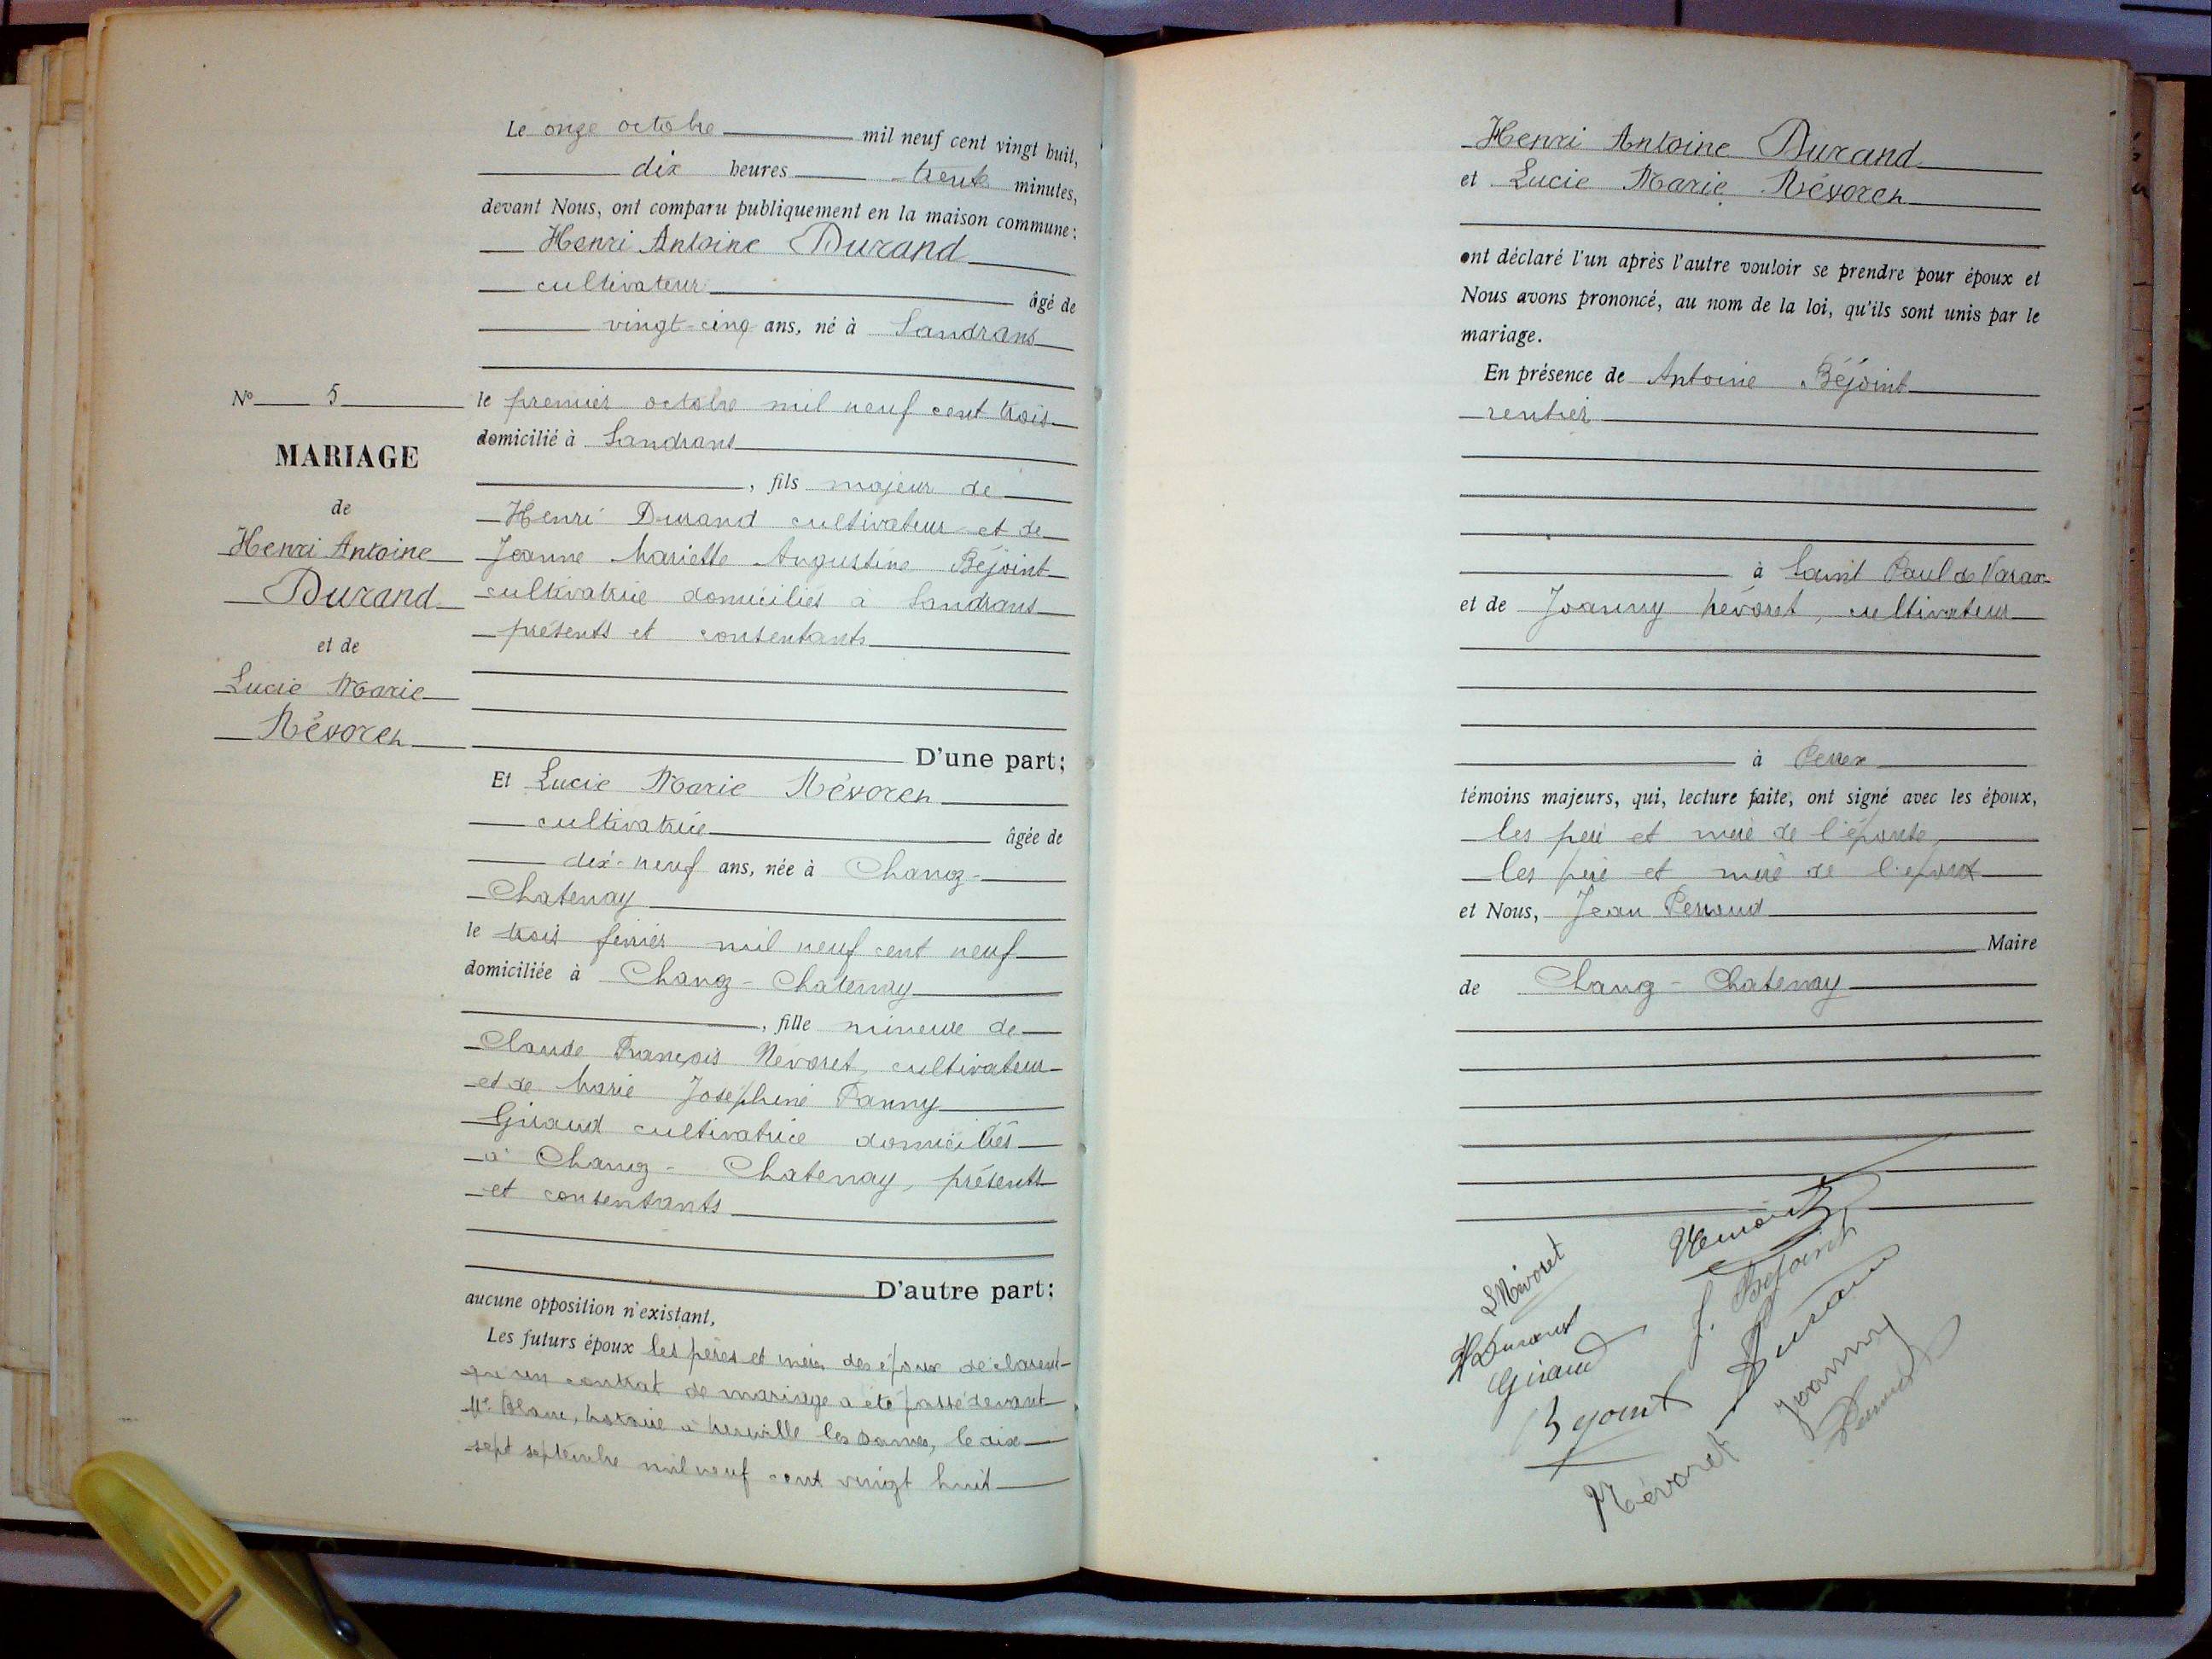 Le onze octobre mil neuf cent vingt huit,
dix heures trente minutes,
devant Nous, ont comparu publiquement en la maison commune :
Henri Antoine Durand
cultivateur âgé de
vingt-cinq ans, né à Sandrans
le premier octobre mil neuf cent trois
domicilié à Sandrans
, fils majeur de
Henri Durand cultivateur et de
Jeanne Mariette Augustine Béjoint
cultivatrice domiciliés à Sandrans
présents et consentants
D'une part;
Et Lucie Marie Névoret
cultivatrice âgée de
dix-neuf ans, née à Chanoz-
Chatenay
le trois février mil neuf cent neuf
domiciliée à Chanoz-Chatenay
, fille mineure de
Claude François Névoret, cultivateur
et de Marie Joséphine Fanny
Giraud cultivatrice domiciliés
à Chanoz-Chatenay, présents
et consentants
D'autre part;
aucune opposition n'existant,
Les futurs époux les pères et mères des époux déclarent
qu'un contrat de mariage a été passé devant
Me Blanc, notaire à Neuville les Dames, le dix
sept septembre mil neuf cent vingt huit
N° 5
MARIAGE
de
Henri Antoine
Durand
et de
Lucie Marie
Névoret
Henri Antoine Durand
et Lucie Marie Névoret
ont déclaré l'un après l'autre vouloir se prendre pour époux et
Nous avons prononcé, au nom de la loi, qu'ils sont unis par le
mariage.
En présence de Antoine Béjoint
rentier
à Saint Paul de Varax
et de Joanny Névoret, cultivateur
à Perrex
témoins majeurs, qui, lecture faite, ont signé avec les époux,
les père et mère de l'épouse,
les père et mère de l'époux
et Nous, Jean Perroud
Maire
de Chanoz-Chatenay
L Névoret
H Durand
Giraud
J. Bejoint
Durand
Bejoint
Névoret
Joanny